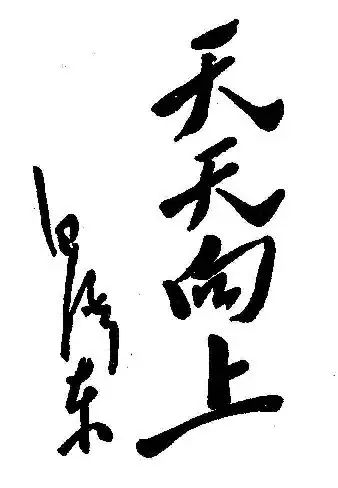 天天向上
毛泽东